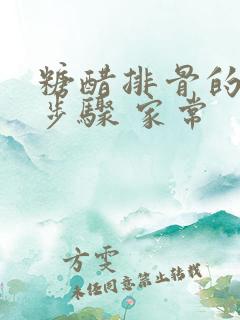 糖醋排骨的
步骤 家常
方雯
未经同意禁止转载